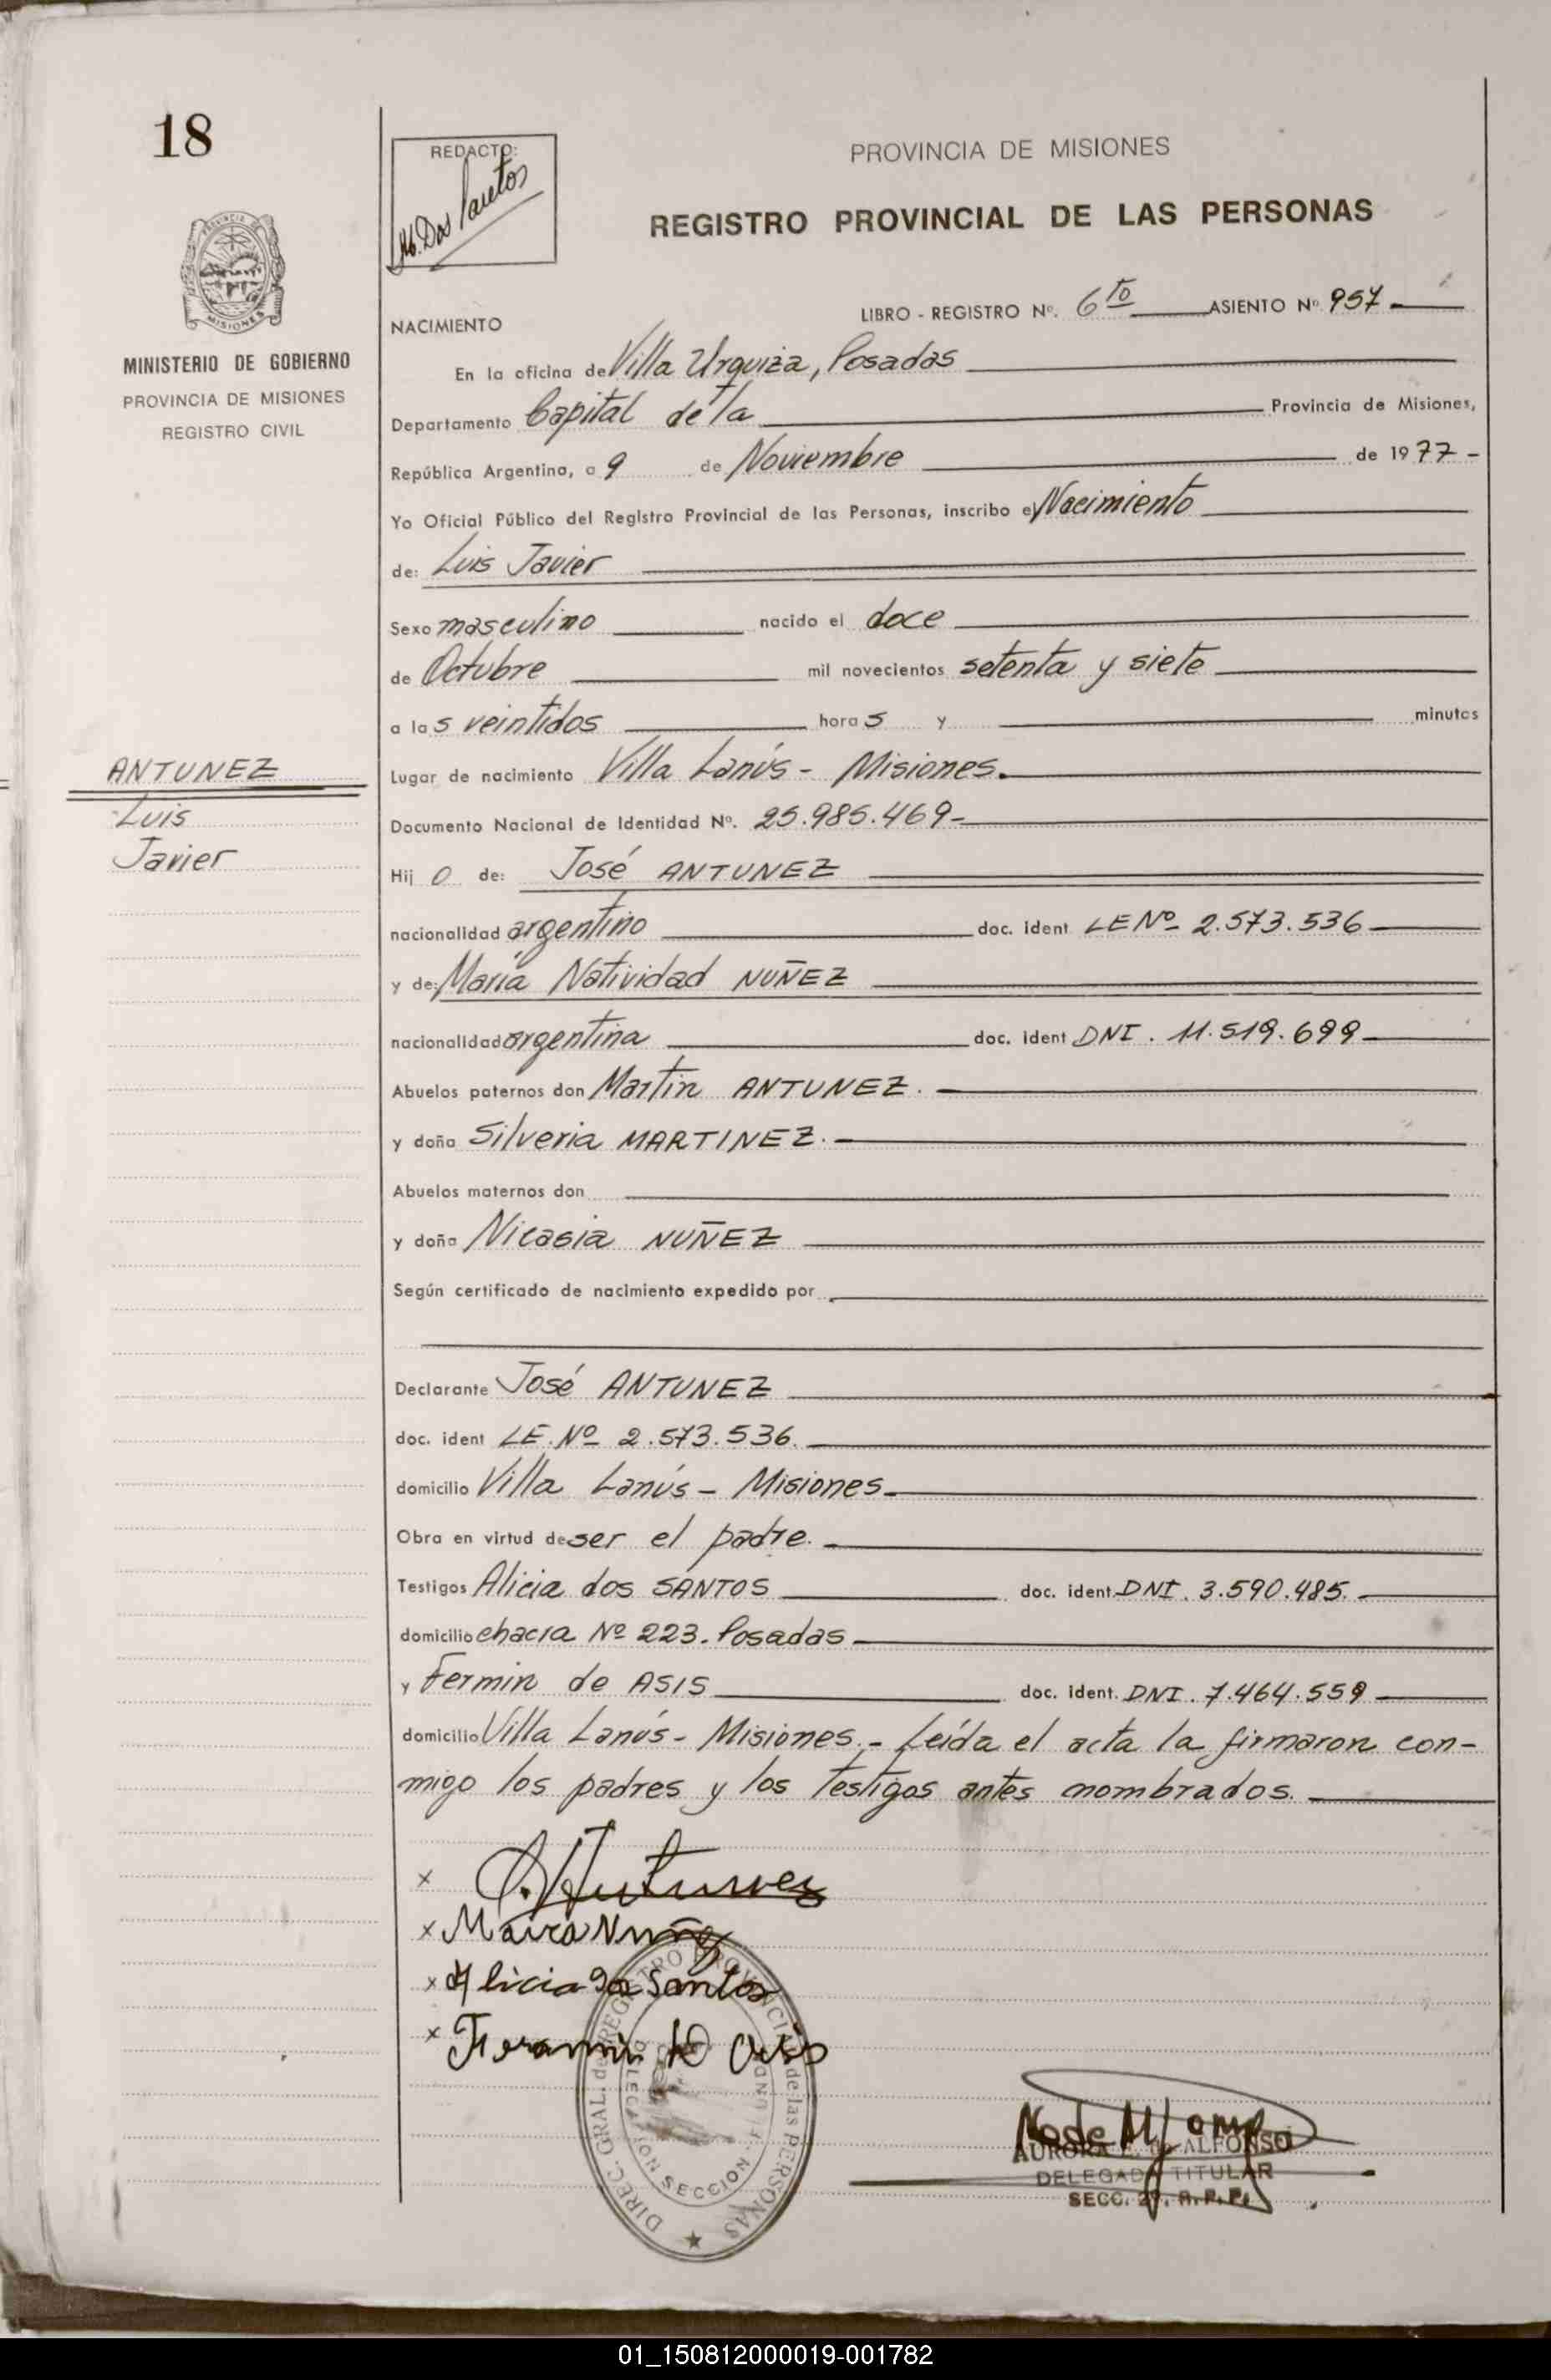 18
REDACTO:
Dos Santos
PROVINCIA DE MISIONES
REGISTRO PROVINCIAL DE LAS PERSONAS
PROVINCIA
MISIONES
MINISTERIO DE GOBIERNO
PROVINCIA DE MISIONES
REGISTRO CIVIL
LIBRO - REGISTRO Nº. 6to ASIENTO Nº 957
NACIMIENTO
En la oficina de Villa Urquiza, Posadas
Departamento Capital de la Provincia de Misiones,
República Argentina, a 9 de Noviembre de 1977 -
Yo Oficial Público del Registro Provincial de las Personas, inscribo el Nacimiento
de: Luis Javier
Sexo masculino nacido el doce
de Octubre mil novecientos setenta y siete
a las veintidos horas y minutos
ANTUNEZ
Luis
Javier
Lugar de nacimiento Villa Lanús - Misiones.
Documento Nacional de Identidad Nº. 25.985.469-
Hijo de: José ANTUNEZ
nacionalidad argentino doc. ident LE Nº 2.573.536
y de: María Natividad NUÑEZ
nacionalidad argentina doc. ident DNI. 11.519.699
Abuelos paternos don Martín ANTUNEZ.
y doña Silveria MARTINEZ.
Abuelos maternos don
y doña Nicasia NUÑEZ
Según certificado de nacimiento expedido por
Declarante José ANTUNEZ
doc. ident LE. Nº 2.573.536.
domicilio Villa Lanús - Misiones
Obra en virtud de ser el padre.
Testigos Alicia dos SANTOS doc. ident. DNI. 3.590.485.
domicilio chacra Nº 223. Posadas
y Fermin de ASIS doc. ident. DNI. 7.464.559
domicilio Villa Lanús - Misiones.- Leída el acta la firmaron con-
migo los padres y los testigos antes nombrados.
x Antunez
x Maria Nuñez
x Alicia dos Santos
x Fermin de Asis
DIREC. GRAL. del REGISTRO PROVINCIAL de las PERSONAS
DELEGACION SECCION
AURORA de ALFONSO
DELEGADA TITULAR
SECC. 2ª. R.P.P.
01_150812000019-001782